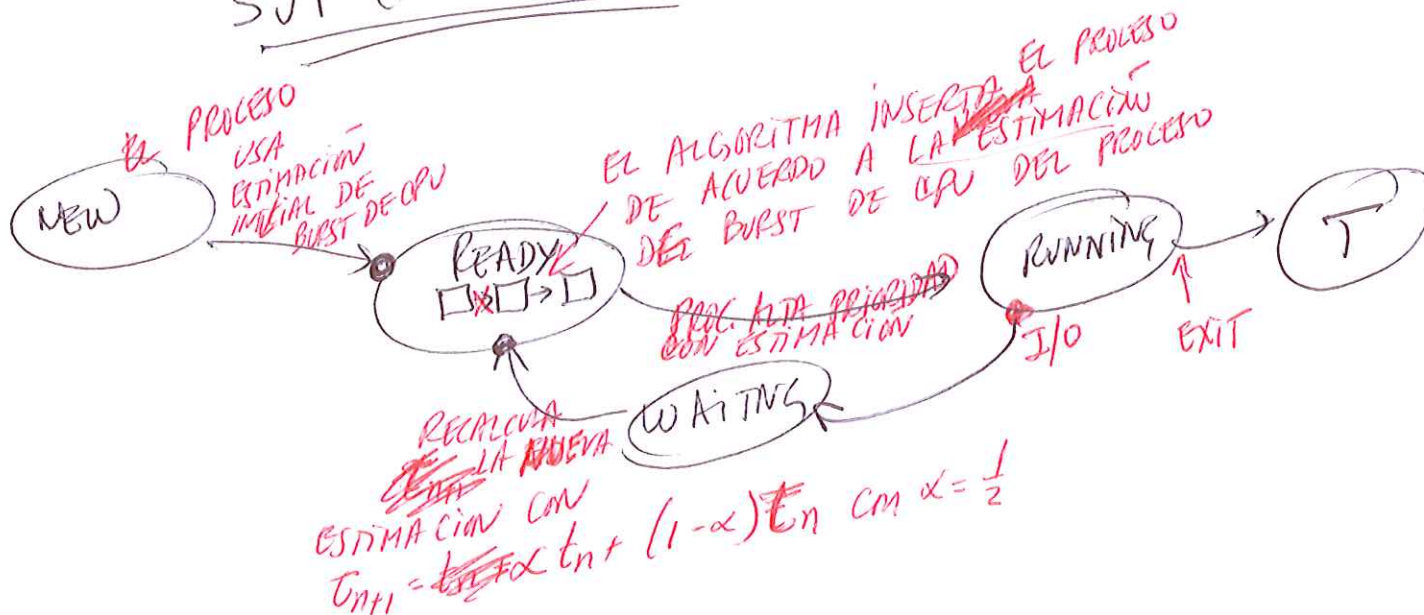 NEW
EL PROCESO
USA
ESTIMACIÓN
INICIAL DE
BURST DE CPU
EL ALGORITMA INSERTA EL PROCESO
DE ACUERDO A LA ESTIMACIÓN
DEL BURST DE CPU DEL PROCESO
READY
PROC. ALTA PRIORIDAD
CON ESTIMACION
RUNNING
T
I/O
EXIT
WAITING
RECALCULA
LA NUEVA
ESTIMACION CON
τn+1 = α tn + (1-α) τn con α = 1/2